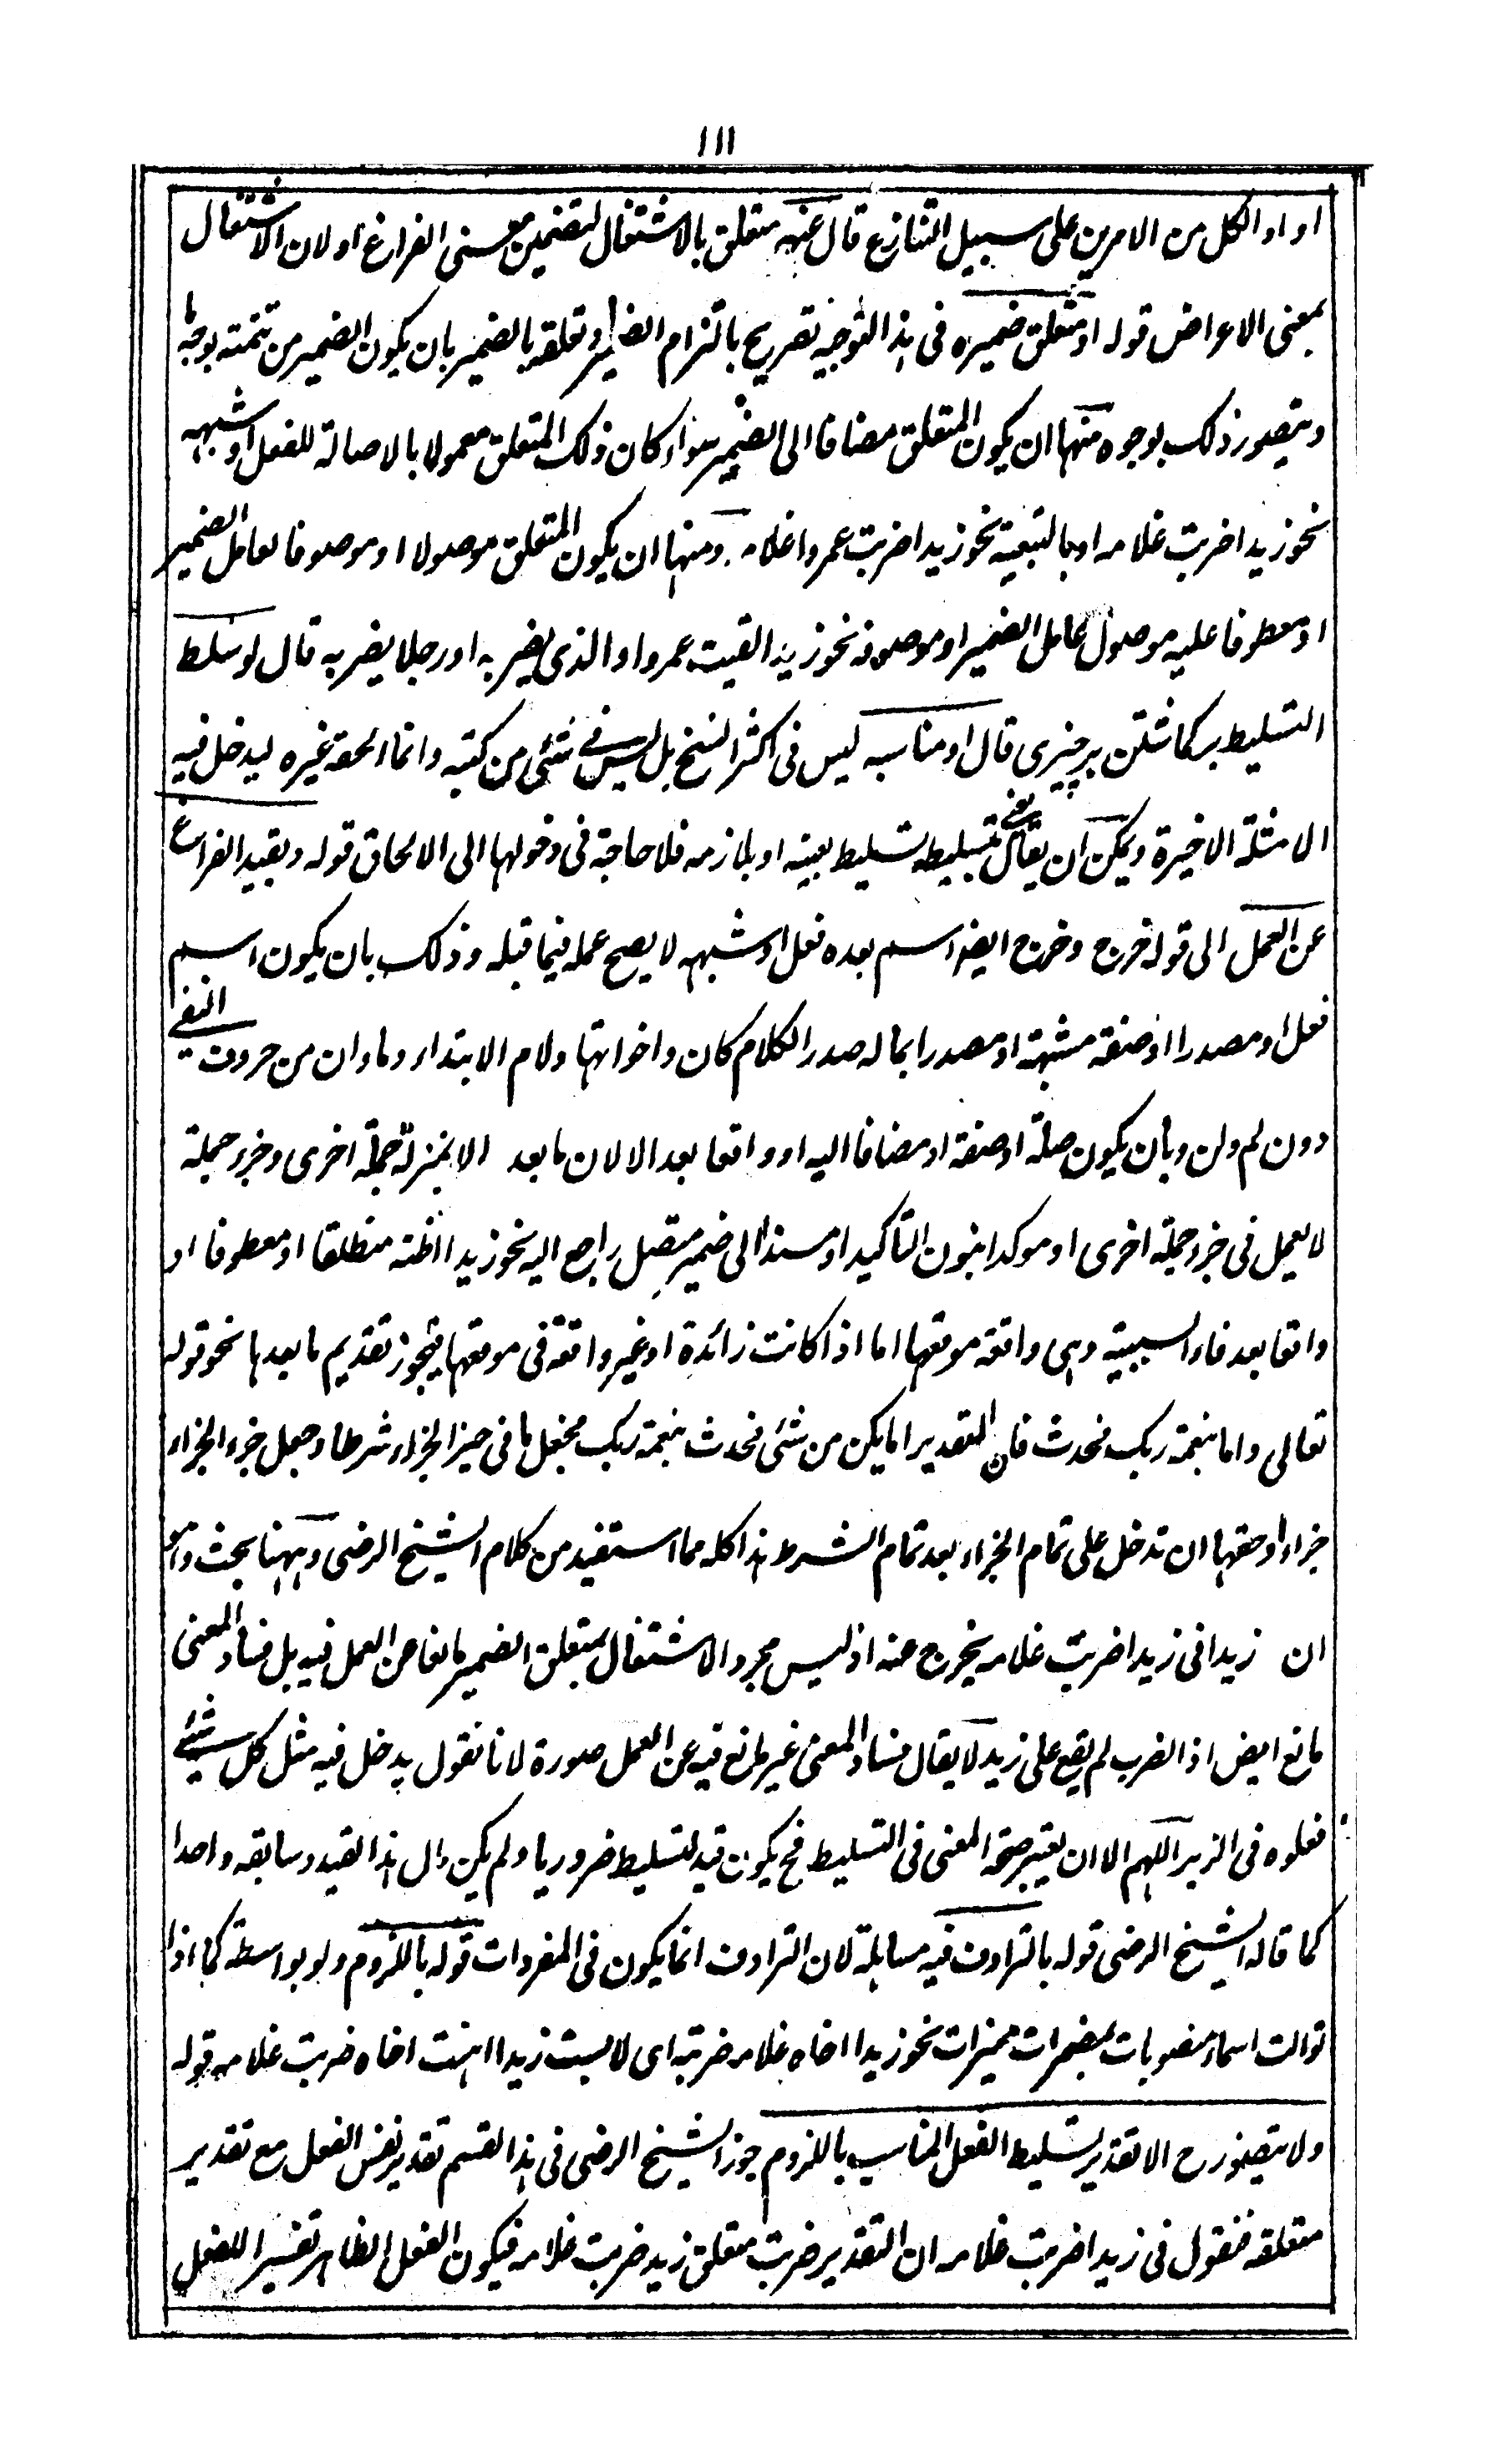 ١١١
او او الكل من الامرين على سبيل التنازع قال عنه متعلق بالاشتغال لتضمين معنى الفراغ او لان الاشتغال
بمعنى الاعراض قوله او متعلق ضميره فى هذا التوجيه تصريح بالتزام الضمير وتعلقه بالضمير بان يكون الضمير من تتمته بوجه ما
ويتصور ذلك بوجوه منها ان يكون المتعلق مضافا الى الضمير سواء كان ذلك المتعلق معمولا بالاصالة للفعل او شبهه
نحو زيدا ضربت غلامه او بالتبعية نحو زيدا ضربت عمروا غلامه ومنها ان يكون المتعلق موصولا او موصوفا لعامل الضمير
او معطوفا عليه موصول عامل الضمير او موصوفه نحو زيدا لقيت عمروا والذى يضربه او رجلا يضربه قال لو سلط
التسليط بر كماشتن بر چيزى قال او مناسبه ليس فى اكثر النسخ بل ليس فى شئى من كتبه وانما الحقه غيره ليدخل فيه
الامثلة الاخيرة ويمكن ان يقال يعنى بتسليطه تسليط بعينه او بلازمه فلا حاجة فى دخولها الى الالحاق قوله وبقيد الفراغ
عن العمل الى قوله خرج وخرج ايضا اسم بعده فعل او شبهه لا يصح عمله فيما قبله وذلك بان يكون اسم
فعل او مصدرا او صفة مشبهة او مصدرا بما له صدر الكلام كان واخواتها ولام الابتداء وما وان من حروف النفى
دون لم ولن وبان يكون صلة او صفة او مضافا اليه او واقعا بعد الا لان ما بعد الا بمنزلة جملة اخرى وجزء جملة
لا يعمل فى جزء جملة اخرى او موكدا بنون التاكيد او مسندا الى ضمير متصل راجع اليه نحو زيدا اظنه منطلقا او معطوفا او
واقعا بعد فاء السببية وهى واقعة موقعها اما اذا كانت زائدة او غير واقعة فى موقعها فيجوز تقديم ما بعدها نحو قوله
تعالى واما بنعمة ربك فحدث فان التقدير اما يكن من شئى فحدث بنعمة ربك فجعل ما فى حيز الجزاء شرطا وجعل جزء الجزاء
جزاء او حقها ان تدخل على تمام الجزاء بعد تمام الشرط هذا كله مما استفيد من كلام الشيخ الرضى وههنا بحث وهو
ان زيدا فى زيدا ضربت غلامه يخرج عنه اذ ليس مجرد الاشتغال بمتعلق الضمير مانعا عن العمل فيه بل فساد المعنى
مانع ايض اذ الضرب لم يقع على زيد لا يقال فساد المعنى غير مانع فيه عن العمل صورة لانا نقول يدخل فيه مثل كل شيئ
فعلوه فى الزبر اللهم الا ان يعتبر صحة المعنى فى التسليط فح يكون قيد التسليط ضروريا ولم يكن مآل هذا القيد وسابقه واحدا
كما قاله الشيخ الرضى قوله بالترادف فيه مساهلة لان الترادف انما يكون فى المفردات قوله باللزوم ولو بواسطة كما اذا
توالت اسماء منصوبات بمضمرات مميزات نحو زيدا اخاه غلامه ضربته اى لابست زيدا اهنت اخاه ضربت غلامه قوله
ولا يتصور ح الا تقدير تسليط الفعل المناسب باللزوم جوز الشيخ الرضى فى هذا القسم تقدير نفس الفعل مع تقدير
متعلقه فنقول فى زيدا ضربت غلامه ان التقدير ضربت متعلق زيد ضربت غلامه فيكون الفعل الظاهر تفسيرا للفعل